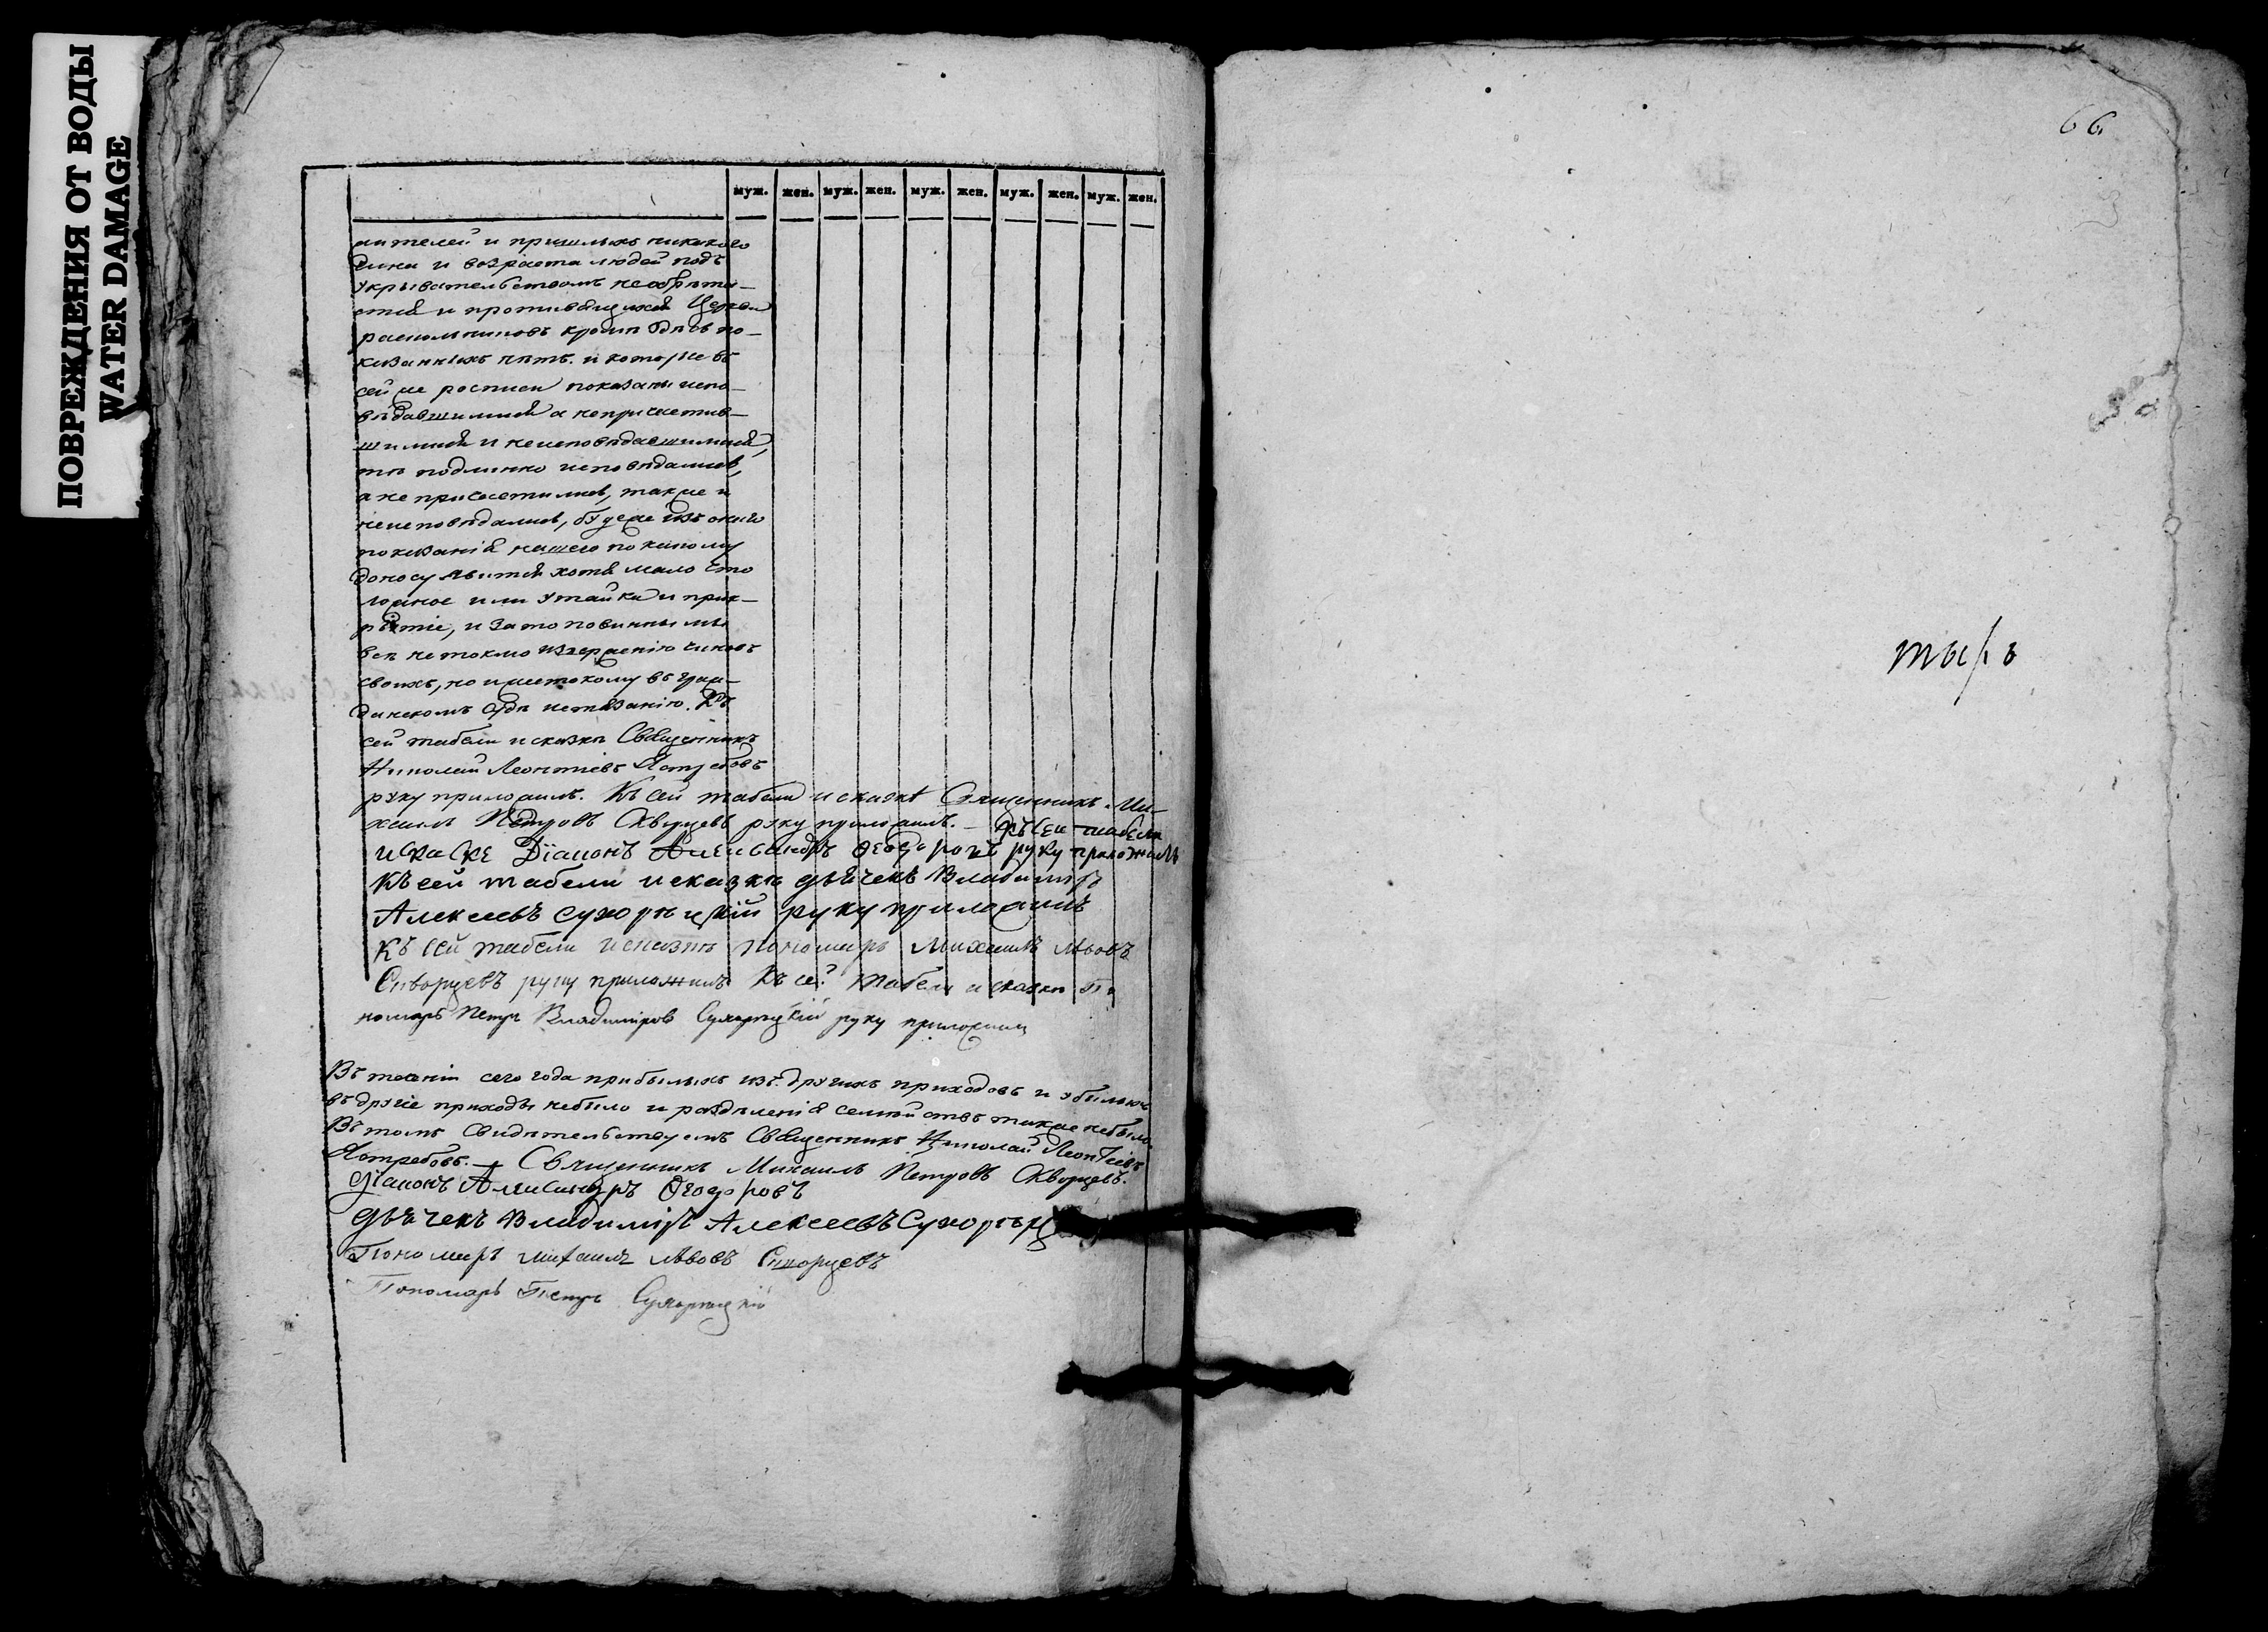 ПОВРЕЖДЕНИЯ ОТ ВОДЫ
WATER DAMAGE
муж. жен. муж. жен. муж. жен. муж. жен. муж. жен.
жителей и пришлыхъ никакого
чина и возраста людей подъ
укрывательствомъ необрѣта-
ется и противящихся Церкви
раскольниковъ кромѣ здѣсь по-
казанныхъ нѣтъ. и которые въ
сей же росписи показаны испо-
вѣдавшимися а непричастив-
шимися и неисповѣдавшимися,
тѣ подлинно исповѣдались,
а не причастились, также и
неисповѣдались, буде же изъ онаго
показанія нашего по какому
доносу явится хотя мало что
ложное или утайка и прик-
рытіе, и зато повинны мы
всѣ не токмо изверженію чиновъ
своихъ, но и жестокому въ граж-
данскомъ судѣ истязанію. Къ
сей табели и сказкѣ Священникъ
Николай Леонтіевъ Ястребовъ
руку приложилъ. Къ сей табели и сказкѣ Священникъ Ми-
хаилъ Петровъ Скворцевъ руку приложилъ. – Къ сей табели
и скаске Діаконъ Александръ Ѳеодоровъ руку приложилъ
Къ сей табели и сказкѣ дьячекъ Владиміръ
Алексеевъ Сухорѣцкій руку приложилъ
Къ сей табели и сказкѣ пономарь Михаилъ Львовъ
Скворцевъ руку приложилъ Къ сей табели и сказки По
номарь Петръ Владиміровъ Сухорѣцкій руку приложилъ
Въ теченіи сего года прибылыхъ изъ другихъ приходовъ и убылыхъ
въ другіе приходы небыло и раздѣленія семействъ также небыло.
Въ томъ Свидѣтельствуемъ Священникъ Николай Леонтіевъ
Ястребовъ. – Священникъ Михаилъ Петровъ Скворцевъ.
Діаконъ Александръ Ѳеодоровъ
дьячекъ Владиміръ Алексеевъ Сухорѣц
Пономарь Михаилъ Львовъ Скворцевъ
Пономарь Петръ Сухорѣцкій
66
тырь